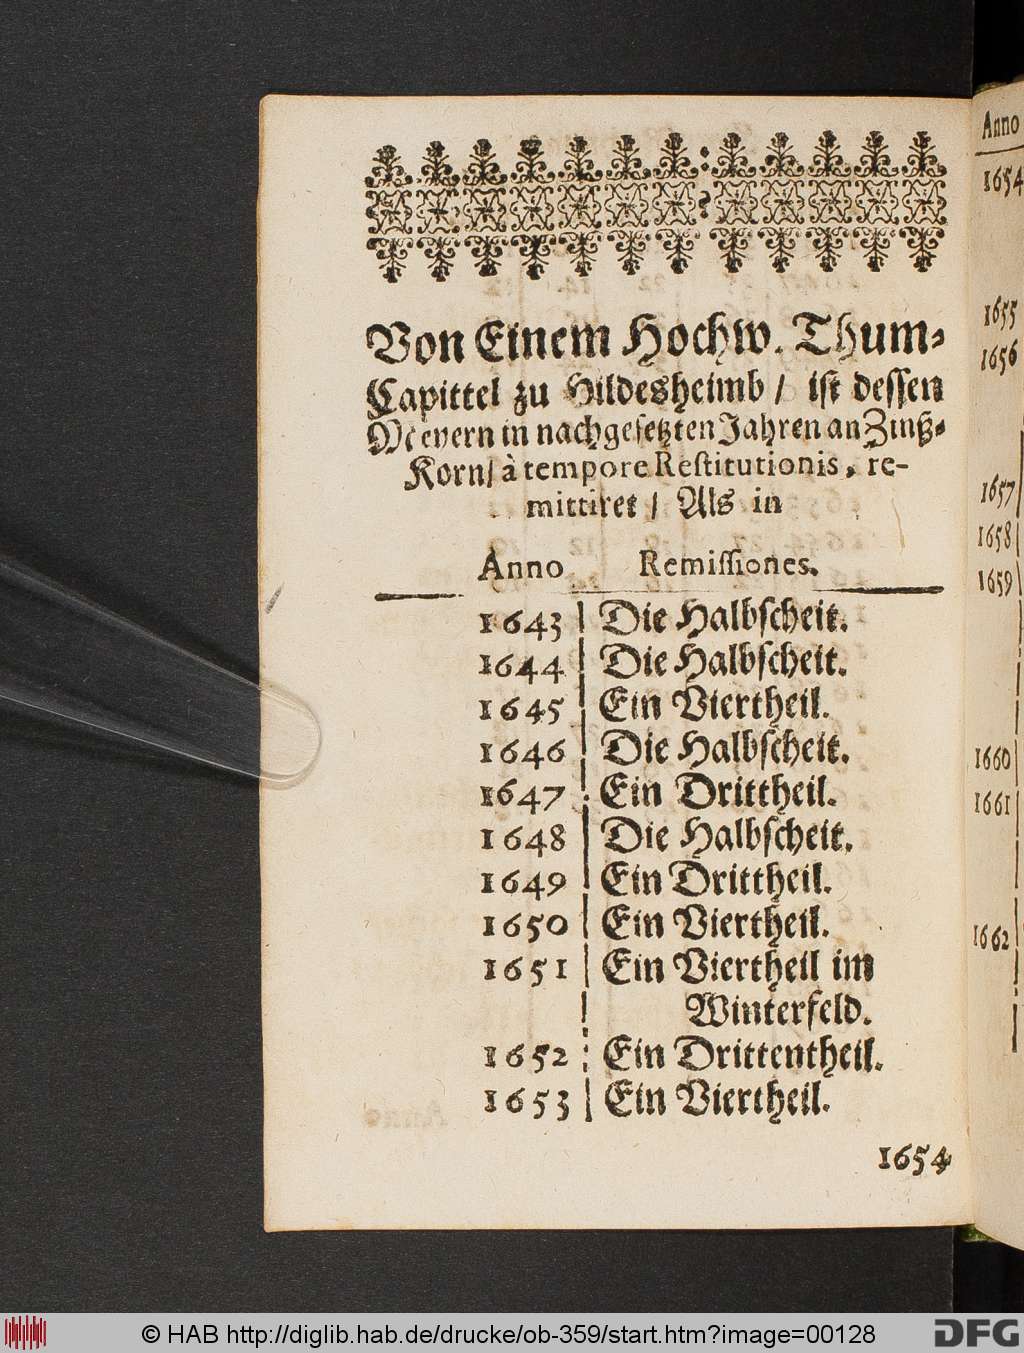 Von Einem Hochw. Thum-
Capittel zu Hildesheimb / ist dessen
Meyern in nachgesetzten Jahren an Zinß-
Korn / à tempore Restitutionis, re-
mittiret / Als in
Anno Remissiones.
1643 Die Halbscheit.
1644 Die Halbscheit.
1645 Ein Viertheil.
1646 Die Halbscheit.
1647 Ein Drittheil.
1648 Die Halbscheit.
1649 Ein Drittheil.
1650 Ein Viertheil.
1651 Ein Viertheil im
Winterfeld.
1652 Ein Drittentheil.
1653 Ein Viertheil.
1654
Anno
1654
1655
1656
1657
1658
1659
1660
1661
1662
© HAB http://diglib.hab.de/drucke/ob-359/start.htm?image=00128
DFG